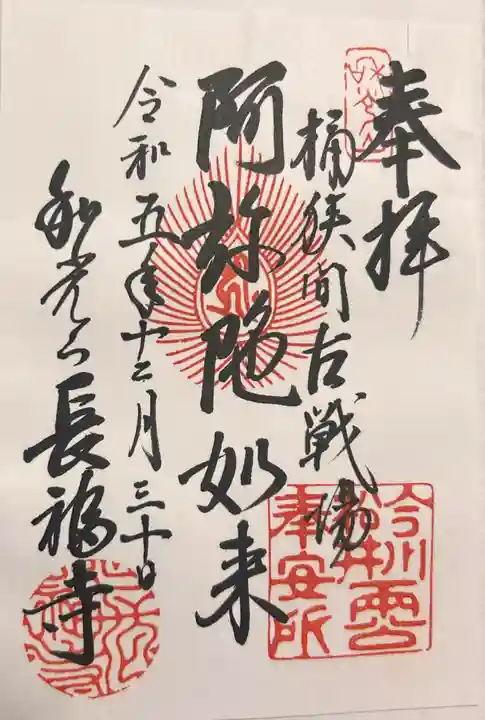 奉拝
桶狭間古戦場
阿弥陀如来
令和五年十二月三十日
和光山長福寺
奉安所